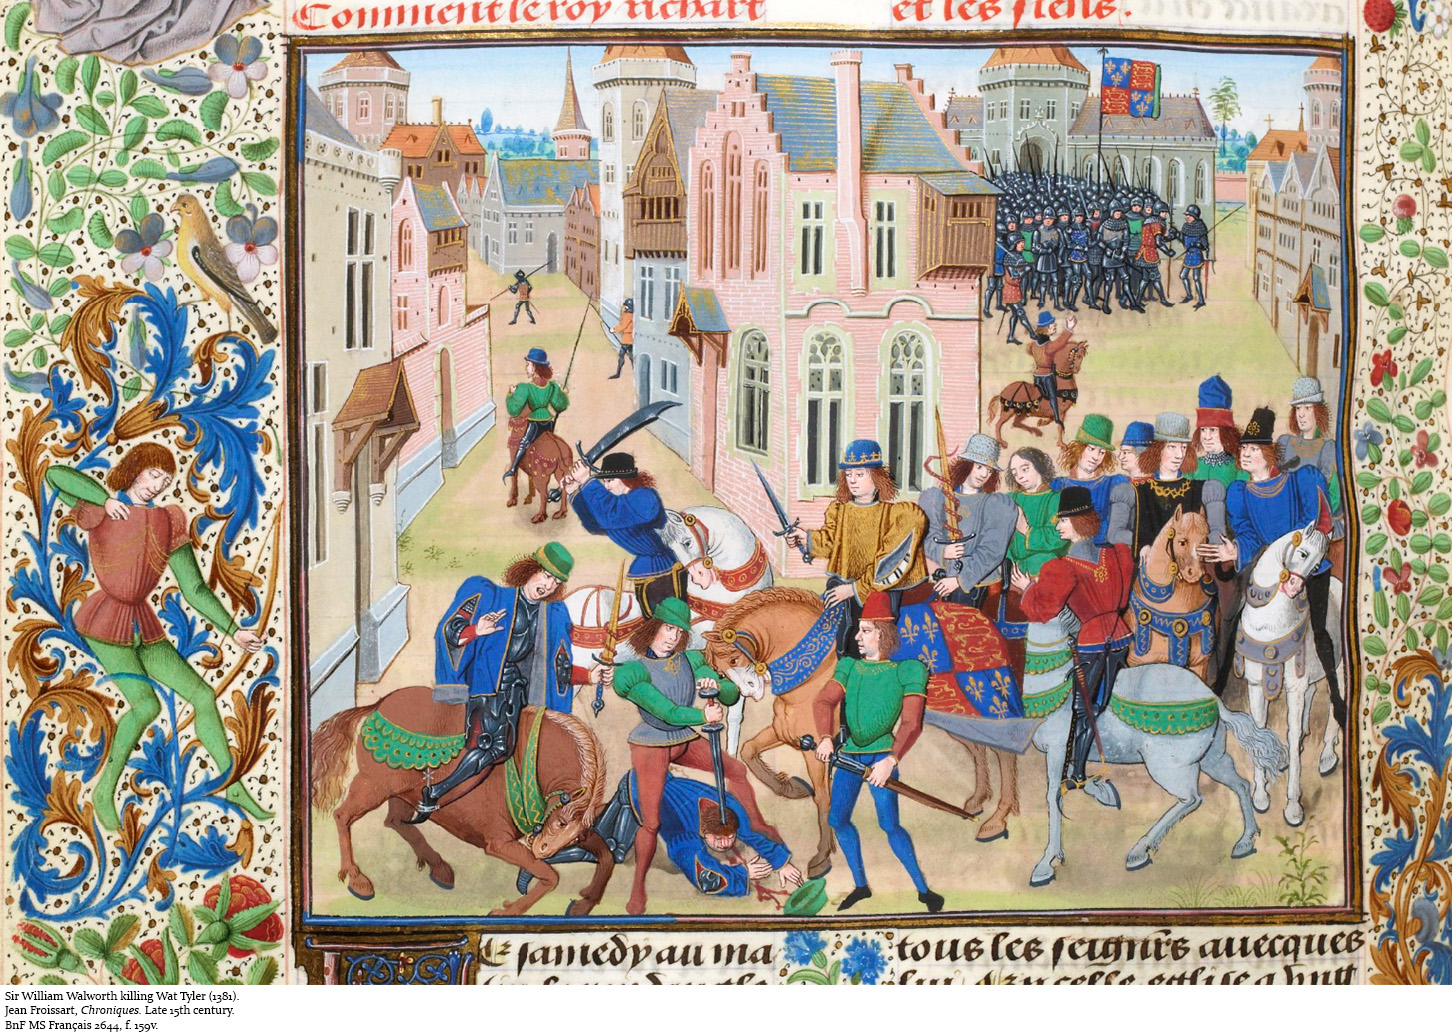 Comment le roy richart et les siens.
E samedy au ma
tous les seignrs auecques
Sir William Walworth killing Wat Tyler (1381).
Jean Froissart, Chroniques. Late 15th century.
BnF MS Français 2644, f. 159v.